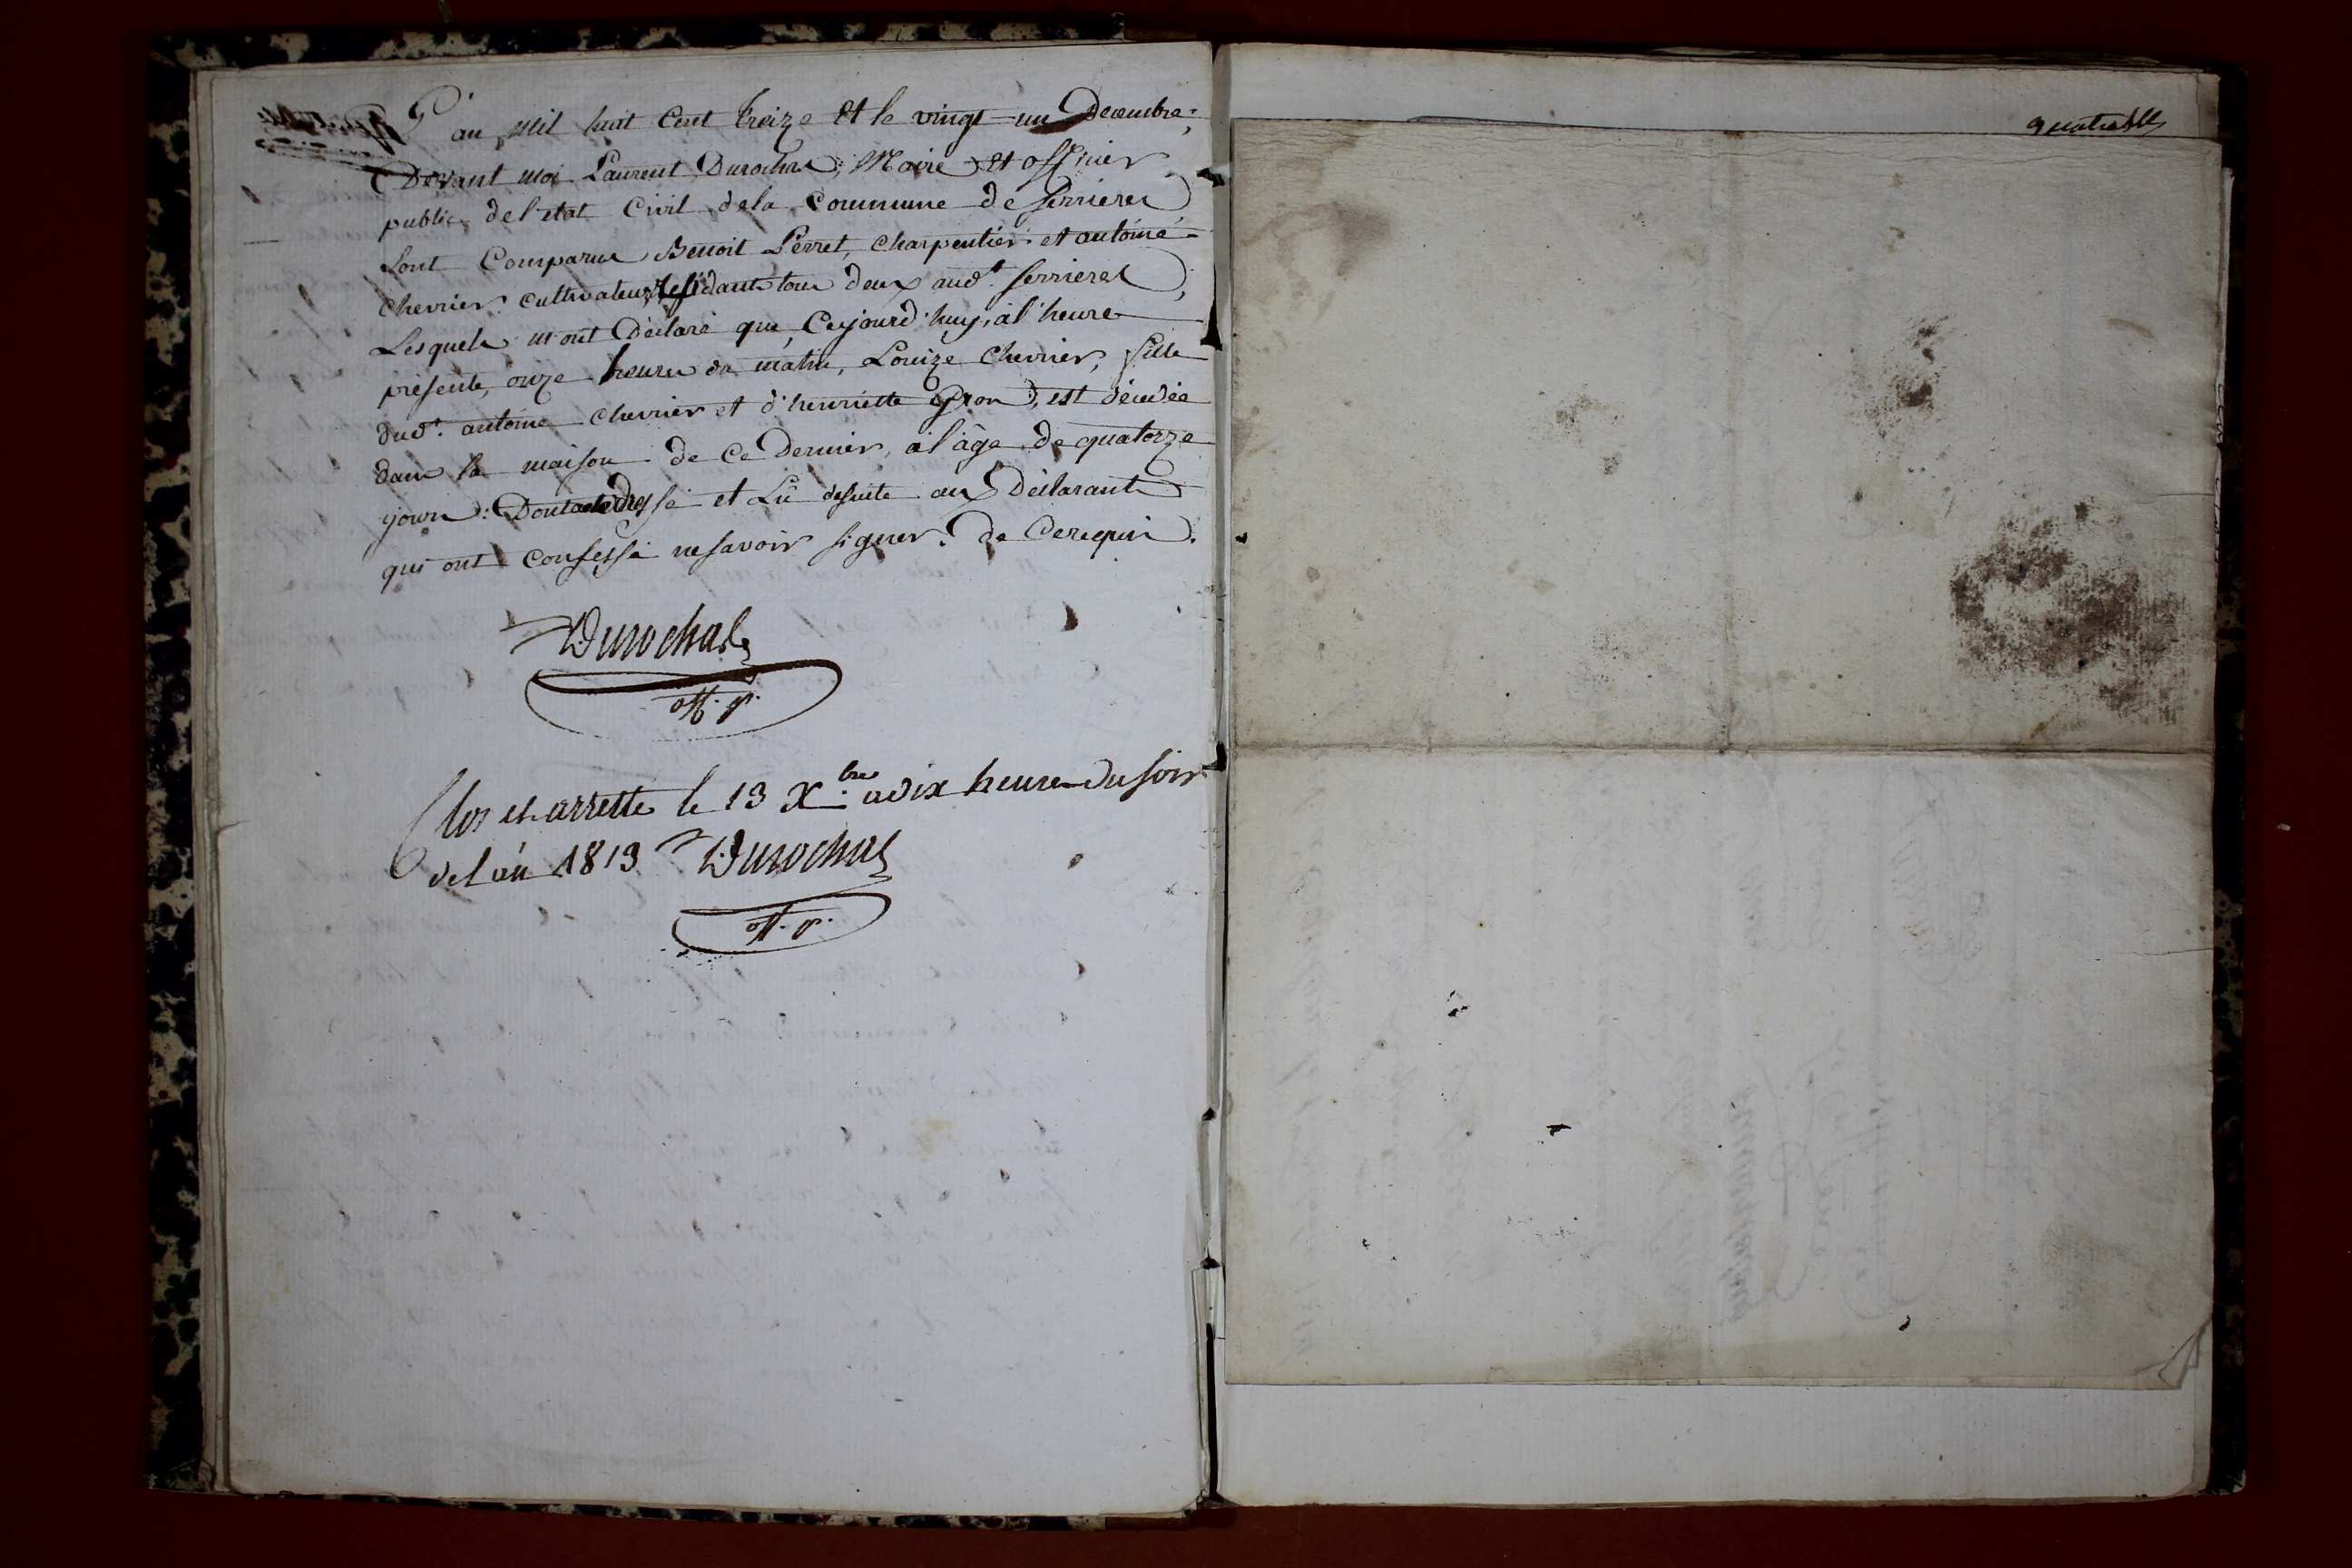 L'an mil huit Cent treize et le vingt-un Decembre;
Devant moi Laurent Durochat, Maire et officier
public de l'etat Civil de la Commune de Serrieres
sont Comparus Benoit Perret, charpentier et antoine
chevrier cultivateur residants tous deux aud.t serrieres,
Lesquels m'ont déclaré que, Cejourd'huy, à l'heure
présente, onze heures du matin, Louize chevrier, fille
dud.t antoine chevrier et d'henriette est décédée
dans la maison de ce dernier, à l'âge de quatorze
jours: Dont acte dressé et Lû desuite aux Déclarants
qui ont confessé ne savoir signer. de Ce requis.
Durochat
off. p.
Clos et arretté le 13 X.bre a dix heures du soir
de l'an 1813 Durochat
off. p.